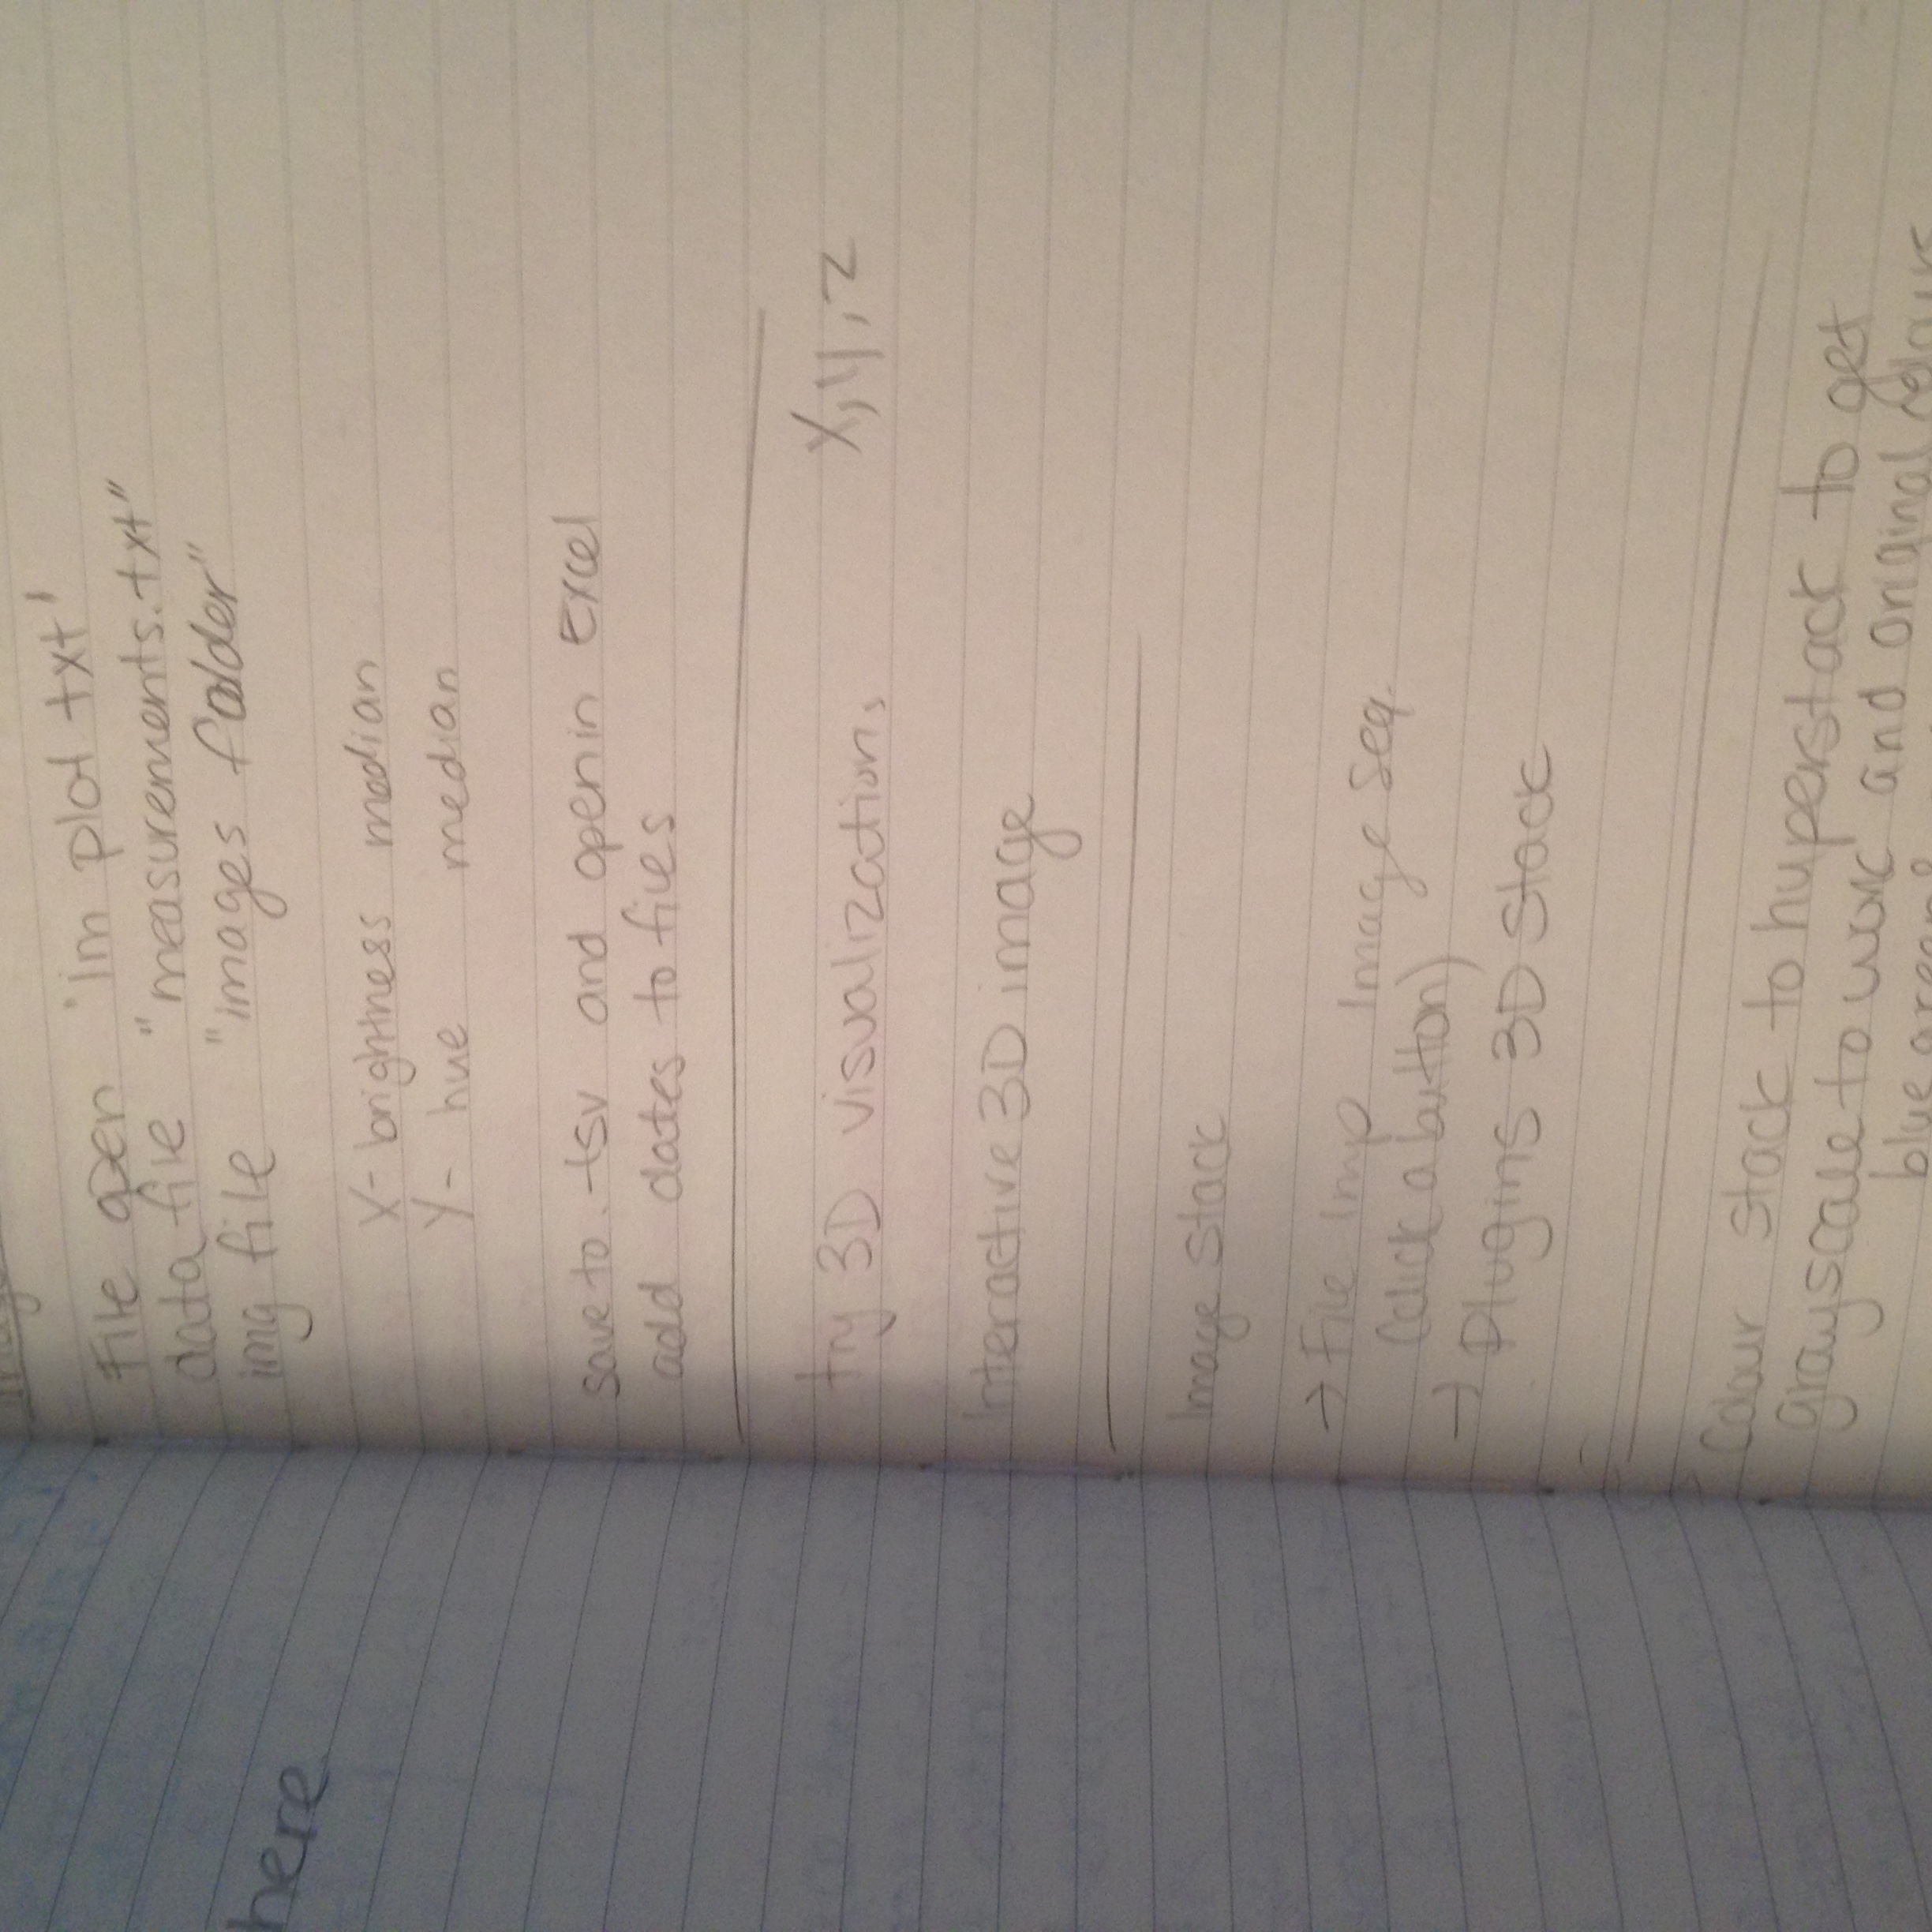 here
File open 'im plot txt'
data file "measurements.txt"
img file "images folder"
X- brightness median
Y- hue median
save to .tsv and open in Excel
add dates to files
try 3D visualization, X, y, z
Interactive 3D image
Image Stack
→ File Imp Image Seq.
(click a button)
→ Plugins 3D Stack
Colour stack to huperstack to get
grayscale to work and original colours
blue green